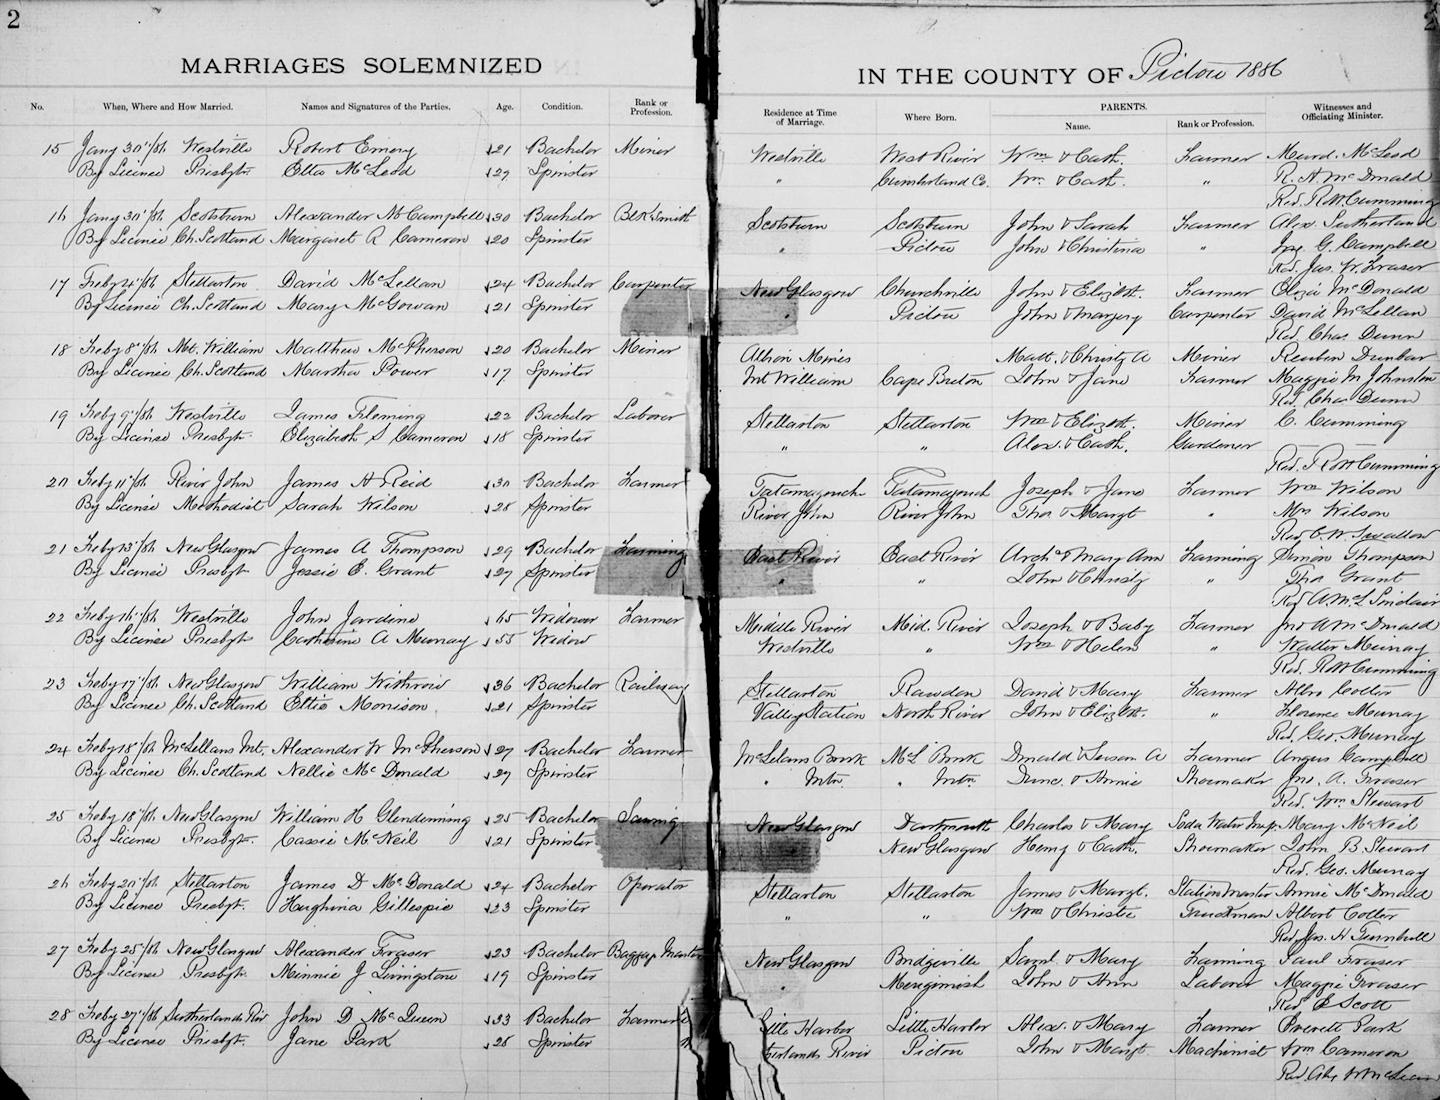 2
MARRIAGES SOLEMNIZED
IN THE COUNTY OF Pictou 1886
No. When, Where and How Married. Names and Signatures of the Parties. Age. Condition. Rank or Profession. Residence at Time of Marriage. Where Born. PARENTS. Name. Rank or Profession. Witnesses and Officiating Minister.
15 Jany 30"/86 Westville Robert Emery 21 Bachelor Miner Westville West River Wm & Cath. Farmer Murd. McLeod
By License Presbytn Etta McLeod 29 Spinster " Cumberland Co. Wm & Cath. " R. A. McDonald
Rev. R W Cumming
16 Jany 30"/86 Scotsburn Alexander McCampbell 30 Bachelor Blksmith Scotsburn Scotsburn John & Sarah Farmer Alex. Sutherland
By License Ch. Scotland Margaret A Cameron 20 Spinster " Pictou John & Christina " G. Campbell
Rev. Jas. W. Fraser
17 Feby 4"/86 Stellarton David McLellan 24 Bachelor Carpenter New Glasgow Churchville John & Elizbth. Farmer Eliza McDonald
By License Ch. Scotland Mary McGowan 21 Spinster " Pictou John & Margery Carpenter David McLellan
Rev. Chas. Dunn
18 Feby 8"/86 Mt. William Matthew McPherson 20 Bachelor Miner Albion Mines Matt. & Christy A Miner Reuben Dunbar
By License Ch. Scotland Martha Power 17 Spinster Mt William Cape Breton John & Jane Farmer Maggie M Johnston
Rev. Chas Dunn
19 Feby 9"/86 Westville James Fleming 22 Bachelor Laborer Stellarton Stellarton Wm & Elizbth. Miner C. Cumming
By License Presbyt. Elizabeth S Cameron 18 Spinster " " Alex. & Cath. Gardener
Rev. R W Cumming
20 Feby 11"/86 River John James H Reid 30 Bachelor Farmer Tatamagouche Tatamagouch Joseph & Jane Farmer Wm Wilson
By License Methodist Sarah Wilson 28 Spinster River John River John Thos & Margt " Mrs Wilson
Rev. C. W. Swallow
21 Feby 13"/86 New Glasgow James A Thompson 29 Bachelor Farming East River East River Archd & Mary Ann Farming Simon Thompson
By License Presbyt. Jessie E. Grant 27 Spinster " " John & Christy " Thos Grant
Rev A. McL Sinclair
22 Feby 16"/86 Westville John Jardine 65 Widower Farmer Middle River Mid. River Joseph & Baby Farmer Jno A McDonald
By License Presbyt Catherine A Murray 55 Widow Westville " Wm & Helen " Walter Murray
Rev. R W Cumming
23 Feby 17"/86 New Glasgow William Withrow 36 Bachelor Railway Stellarton Rawdon David & Mary Farmer Albro Colter
By License Ch. Scotland Ettie Morrison 21 Spinster Valley Station North River John & Elizbth. " Florence Murray
Rev. Geo. Murray
24 Feby 18"/86 McLellans Mt. Alexander W McPherson 27 Bachelor Farmer McLelans Brook McL Brook Donald & Susan A Farmer Angus Campbell
By License Ch. Scotland Nellie McDonald 29 Spinster " Mtn. " Mtn. Dunc. & Annie Shoemaker Jno. A. Fraser
Rev. Wm Stewart
25 Feby 18"/86 New Glasgow William H Glendenning 25 Bachelor New Glasgow Dartmouth Charles & Mary Soda Water Mary McNeil
By License Presbyt. Cassie McNeil 21 Spinster New Glasgow Henry & Cath. Shoemaker John B Stewart
Rev. Geo. Murray
26 Feby 20"/86 Stellarton James D McDonald 24 Bachelor Operator Stellarton Stellarton James & Margt. Station Master Annie McDonald
By License Presbyt. Hughina Gillespie 23 Spinster " " Wm & Christie Truckman Albert Colter
Rev Jos. H Turnbull
27 Feby 25"/86 New Glasgow Alexander Fraser 23 Bachelor Baggage Master New Glasgow Bridgeville Saml. & Mary Farming Paul Fraser
By License Presbyt. Minnie J Livingstone 19 Spinster " Merigomish John & Ann Laborer Maggie Fraser
Rev E Scott
28 Feby 27"/86 Sutherlands Riv John D McQueen 33 Bachelor Farmer Little Harbor Little Harbor Alex. & Mary Farmer Everett Park
By License Presbyt. Jane Park 26 Spinster Pictou John & Margt. Machinist Wm Cameron